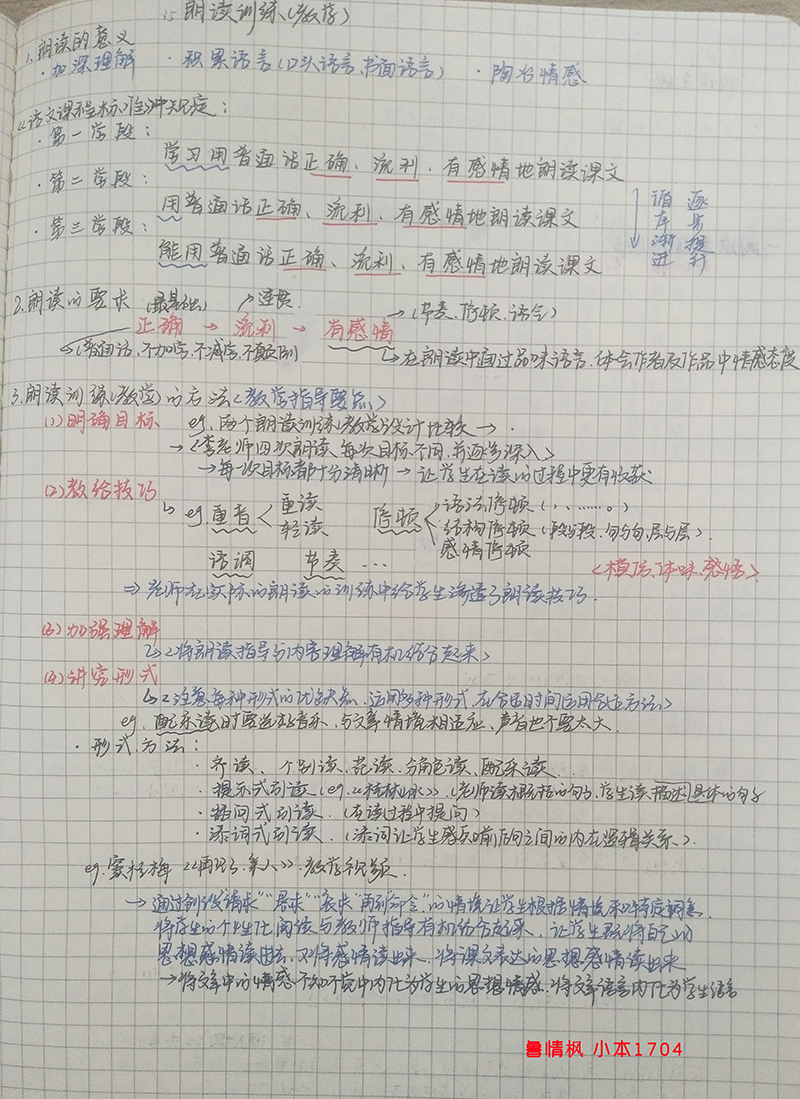 朗读训练(教学)
1.朗读的意义
·加深理解 ·积累语言(口头语言、书面语言) ·陶冶情感
《语文课程标准》中规定:
·第一学段:
学习用普通话正确、流利、有感情地朗读课文
·第二学段:
用普通话正确、流利、有感情地朗读课文
·第三学段:
能用普通话正确、流利、有感情地朗读课文
循序渐进
逐步提升
2.朗读的要求 (最基础) ↗连贯.
→(节奏、停顿、语气)
正确 → 流利 → 有感情
↳(普通话,不加字,不减字,不颠倒) ↳在朗读中通过品味语言,体会作者及作品中情感态度
3.朗读训练(教学)的方法<教学指导要点>
(1)明确目标 eg.两个朗读训练(教学)设计比较→.
→<李老师四次朗读、每次目标不同,并逐步深入>
→每一次目标都十分清晰→让学生在读的过程中更有收获
(2)教给技巧
↳eg.重音<重读 轻读 停顿<语法停顿(、,……。)
结构停顿(段与段、句与句,层与层).
感情停顿
语调 节奏 … <模仿、体味、感悟>
⇒老师在实际的朗读的训练中给学生渗透了朗读技巧.
(3)加强理解
↳<将朗读指导与内容理解有机结合起来>
(4)讲究形式
↳<注意每种形式的优缺点,运用多种形式,在合适时间运用合适方法>
eg.配乐读时要选好音乐,与文章情境相适应,声音也不要太大.
·形式、方法:
·齐读、个别读、范读、分角色读、配乐读…
·提示式引读(eg.《桂林山水》)(老师读概括的句子,学生读描述具体的句子
·插问式引读.(在读过程中提问)
·添词式引读.(添词让学生感知前后句之间的内在逻辑关系.)
eg.窦桂梅《再见了,亲人》教学视频.
→通过创设“请求”“恳求”“哀求”再到“命令”的情境让学生根据情境采以特定调息.
将学生的个性化阅读与教师指导有机结合起来,让学生能将自己的
思想感情读进去,又将感情读出来、将课文表达的思想感情读出来
→将文章中的情感不知不觉中内化为学生的思想情感,将文章语言内化为学生语言
鲁情枫 小本1704